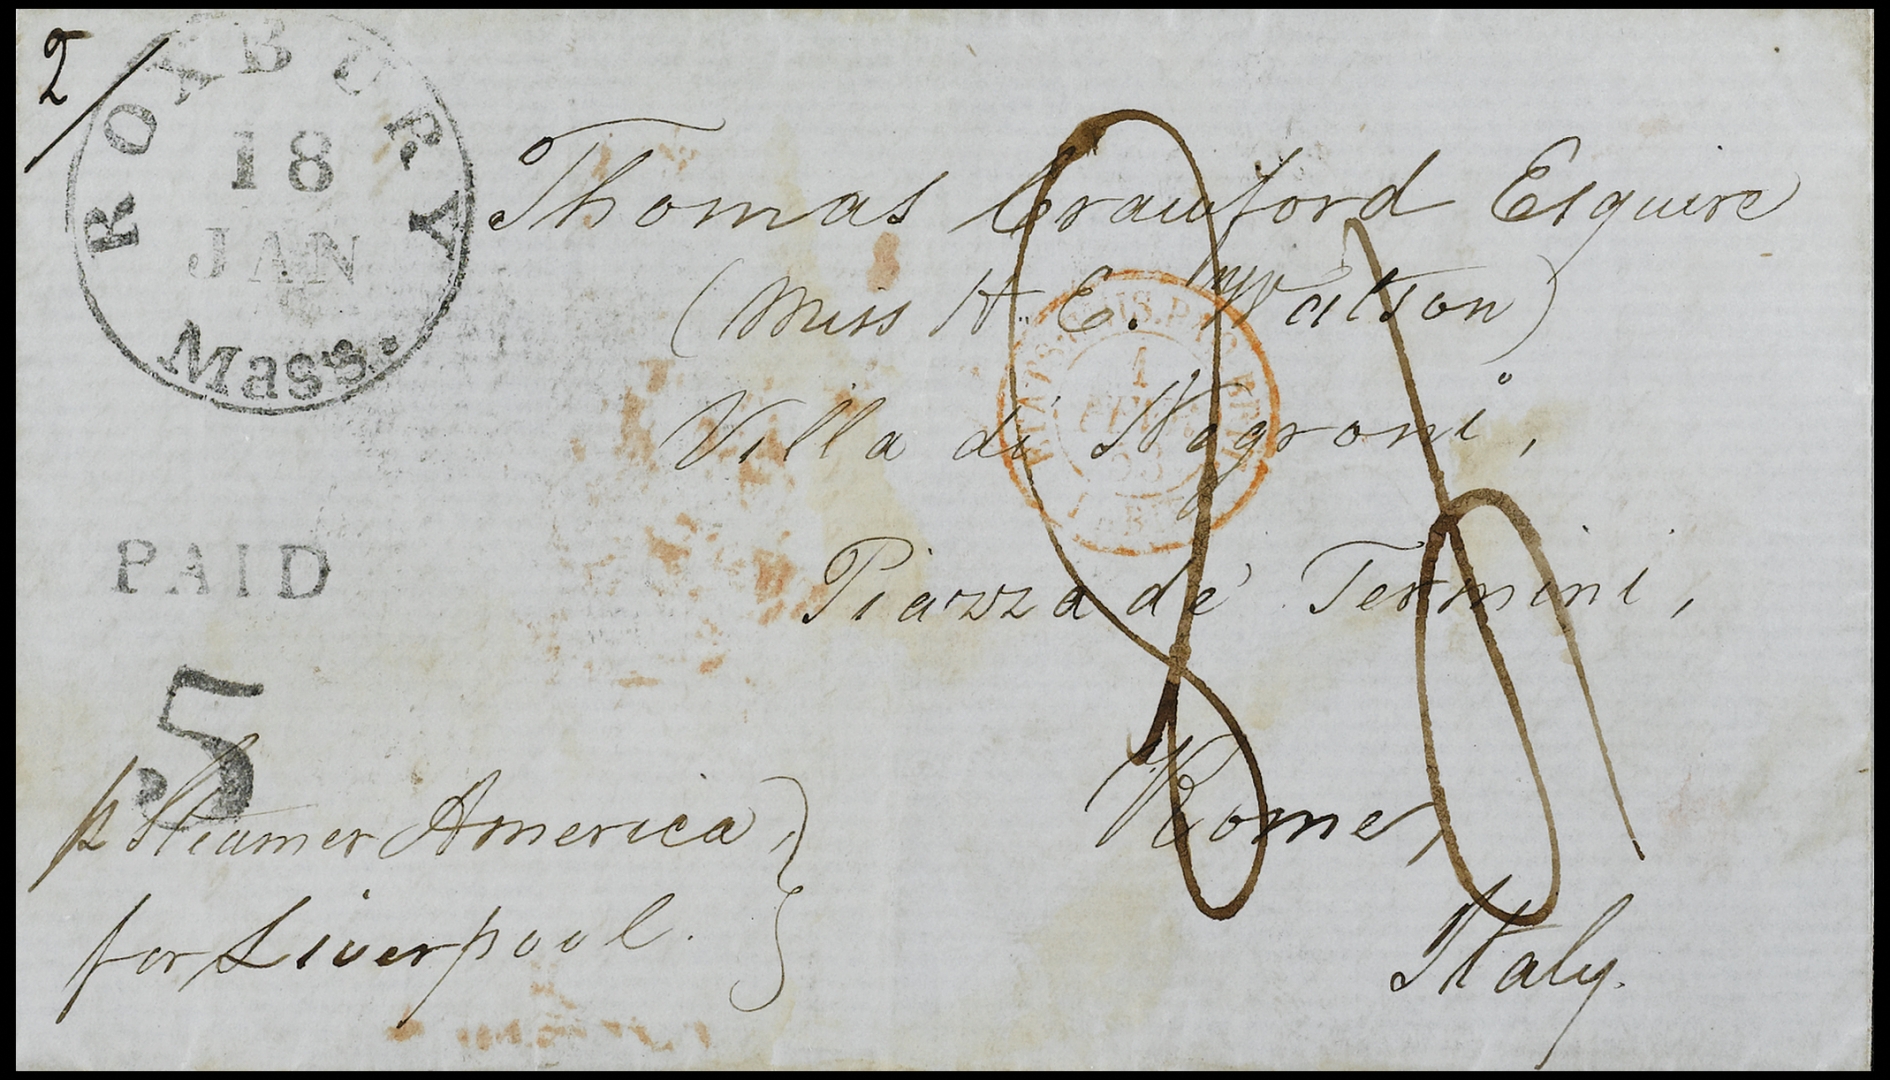 2/
ROXBURY
18
JAN
Mass.
Thomas Crawford Esquire
(Miss H. E. Watson)
Villa di Negroni,
Piazza de Termini,
Rome,
Italy.
PAID
5
p Steamer America,
for Liverpool.